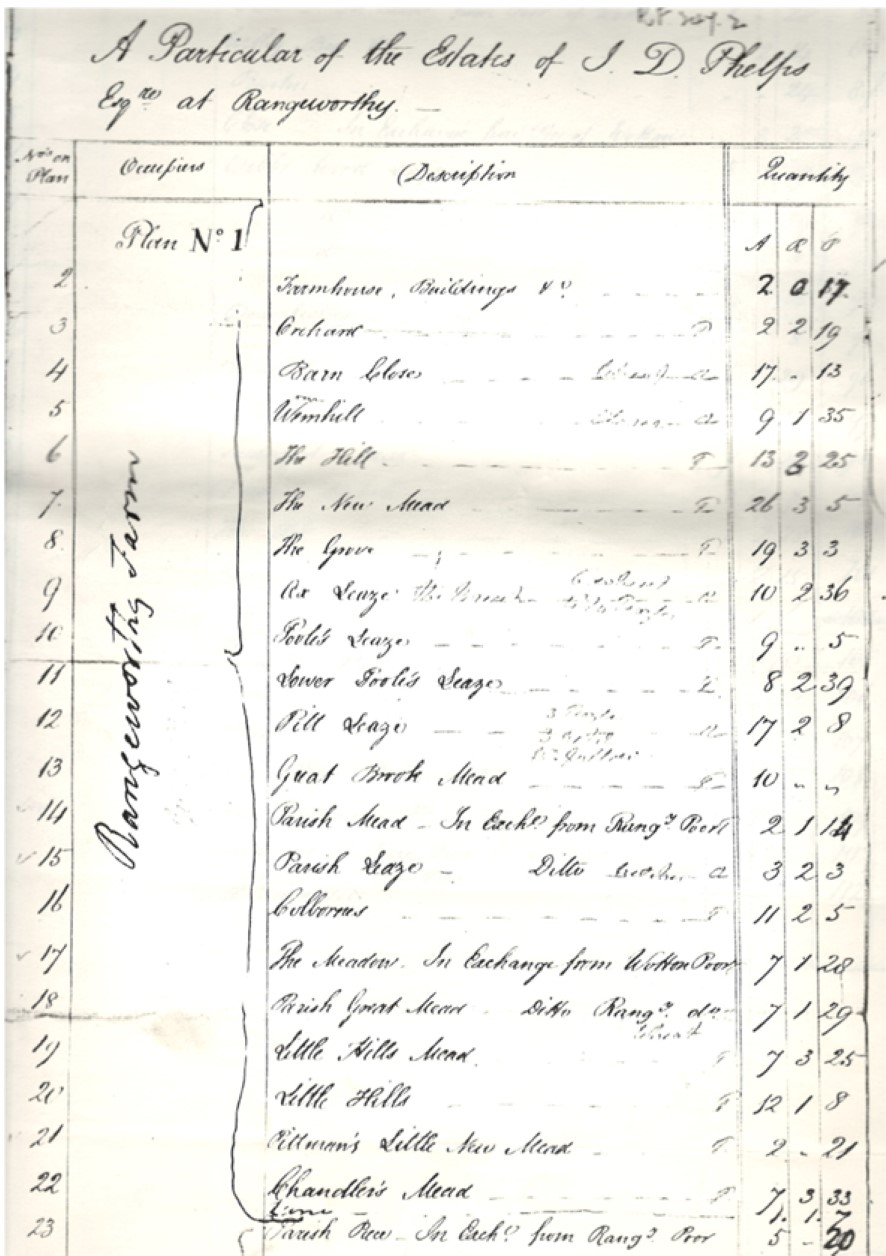 A Particular of the Estates of J. D. Phelps
Esqre at Rangeworthy. —
Nos on Plan Occupiers Description Quantity
Plan No 1 A R P
Rangeworthy Farm
2 Farmhouse, Buildings &c 2 0 17
3 Orchard P 2 2 19
4 Barn Close Wheat a 17 - 13
5 Wimhill a 9 1 35
6 The Hill P 13 3 25
7 The New Mead P 26 3 5
8 The Grove P 19 3 3
9 Ox Leaze a 10 2 36
10 Poole's Leaze P 9 - 5
11 Lower Poole's Leaze P 8 2 39
12 Pill Leaze a 17 2 8
13 Great Brook Mead P 10 " "
14 Parish Mead - In Exche from Rangy Poor 2 1 14
15 Parish Leaze - Ditto a 3 2 3
16 Colbornes P 11 2 5
17 The Meadow. In Exchange from Wotton Poor 7 1 28
18 Parish Great Mead - Ditto Rangy do 7 1 29
Wheat
19 Little Hills Mead P 7 3 25
20 Little Hills P 12 1 8
21 Pittman's Little New Mead P 2 - 21
22 Chandler's Mead P 7 3 33
Lane 1. 1. 7
23 Parish Piece - In Exche from Rangy Poor 5 - 20